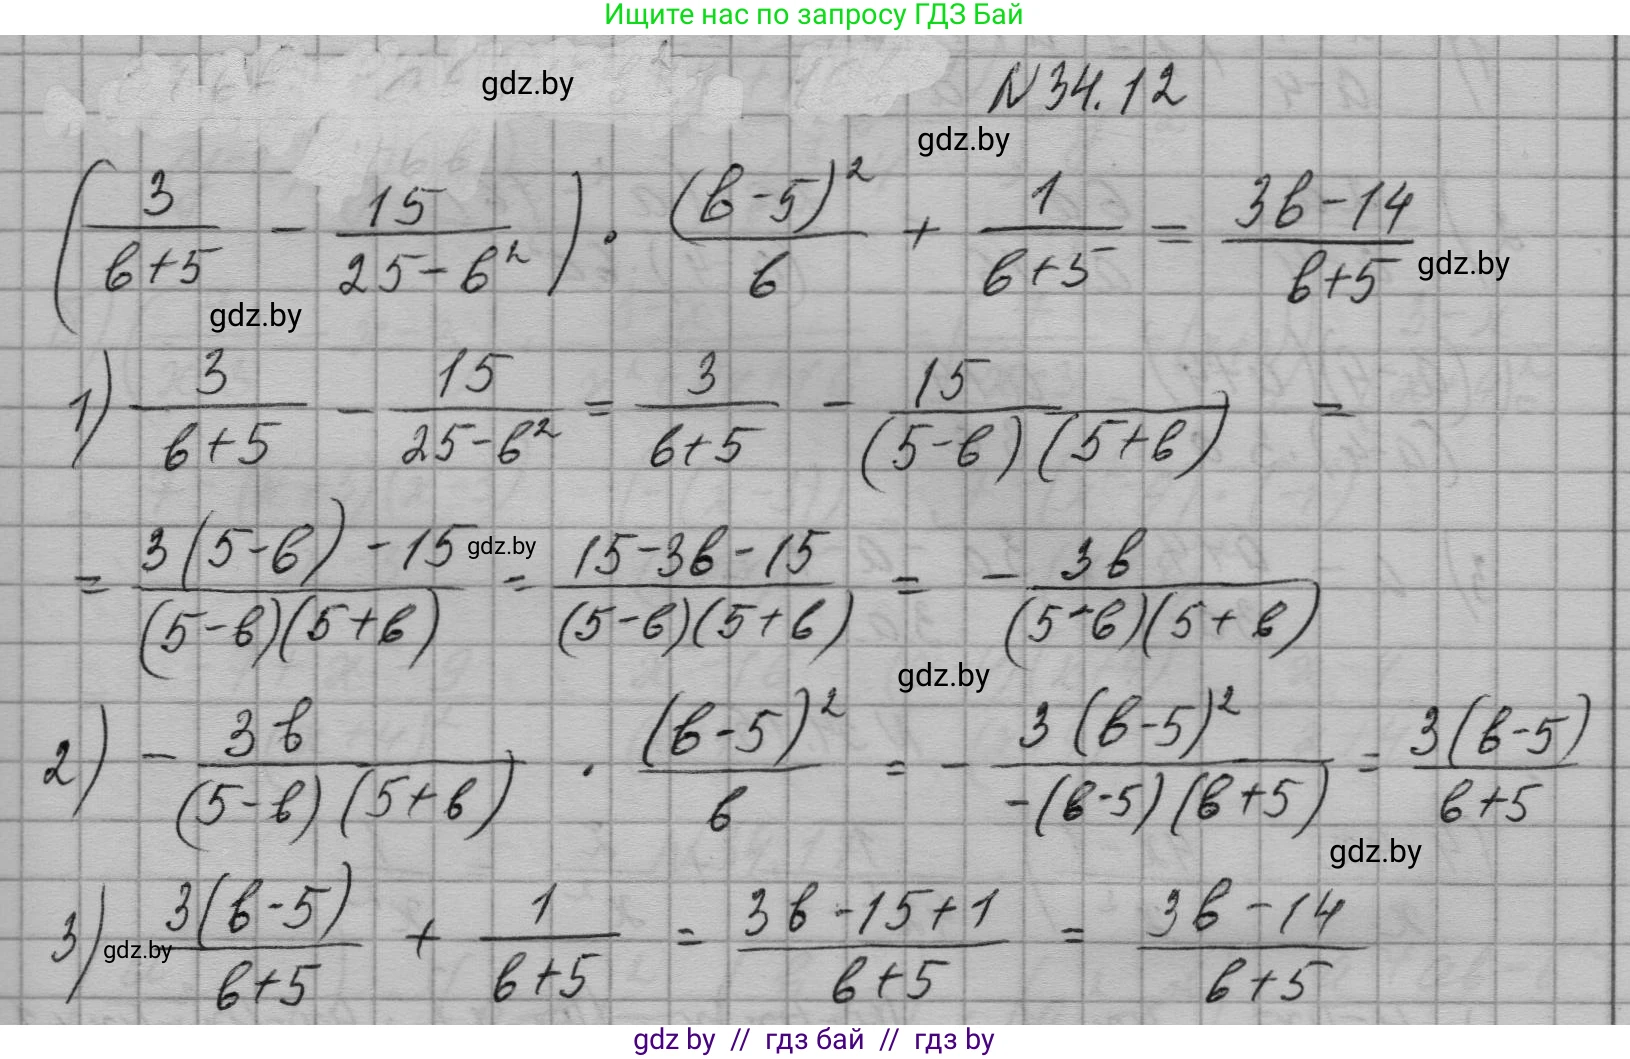 Ищите нас по запросу ГДЗ Бай
gdz.by
N 34.12
gdz.by
(3/(в+5) - 15/(25-в²)) · (в-5)²/в + 1/(в+5) = (3в-14)/(в+5)
gdz.by
gdz.by
1) 3/(в+5) - 15/(25-в²) = 3/(в+5) - 15/((5-в)(5+в)) =
= (3(5-в)-15)/((5-в)(5+в)) = (15-3в-15)/((5-в)(5+в)) = - 3в/((5-в)(5+в))
gdz.by
gdz.by
2) - 3в/((5-в)(5+в)) · (в-5)²/в = - 3(в-5)²/(-(в-5)(в+5)) = 3(в-5)/(в+5)
gdz.by
3) 3(в-5)/(в+5) + 1/(в+5) = (3в-15+1)/(в+5) = (3в-14)/(в+5)
gdz.by
gdz by // гдз бай // гдз by